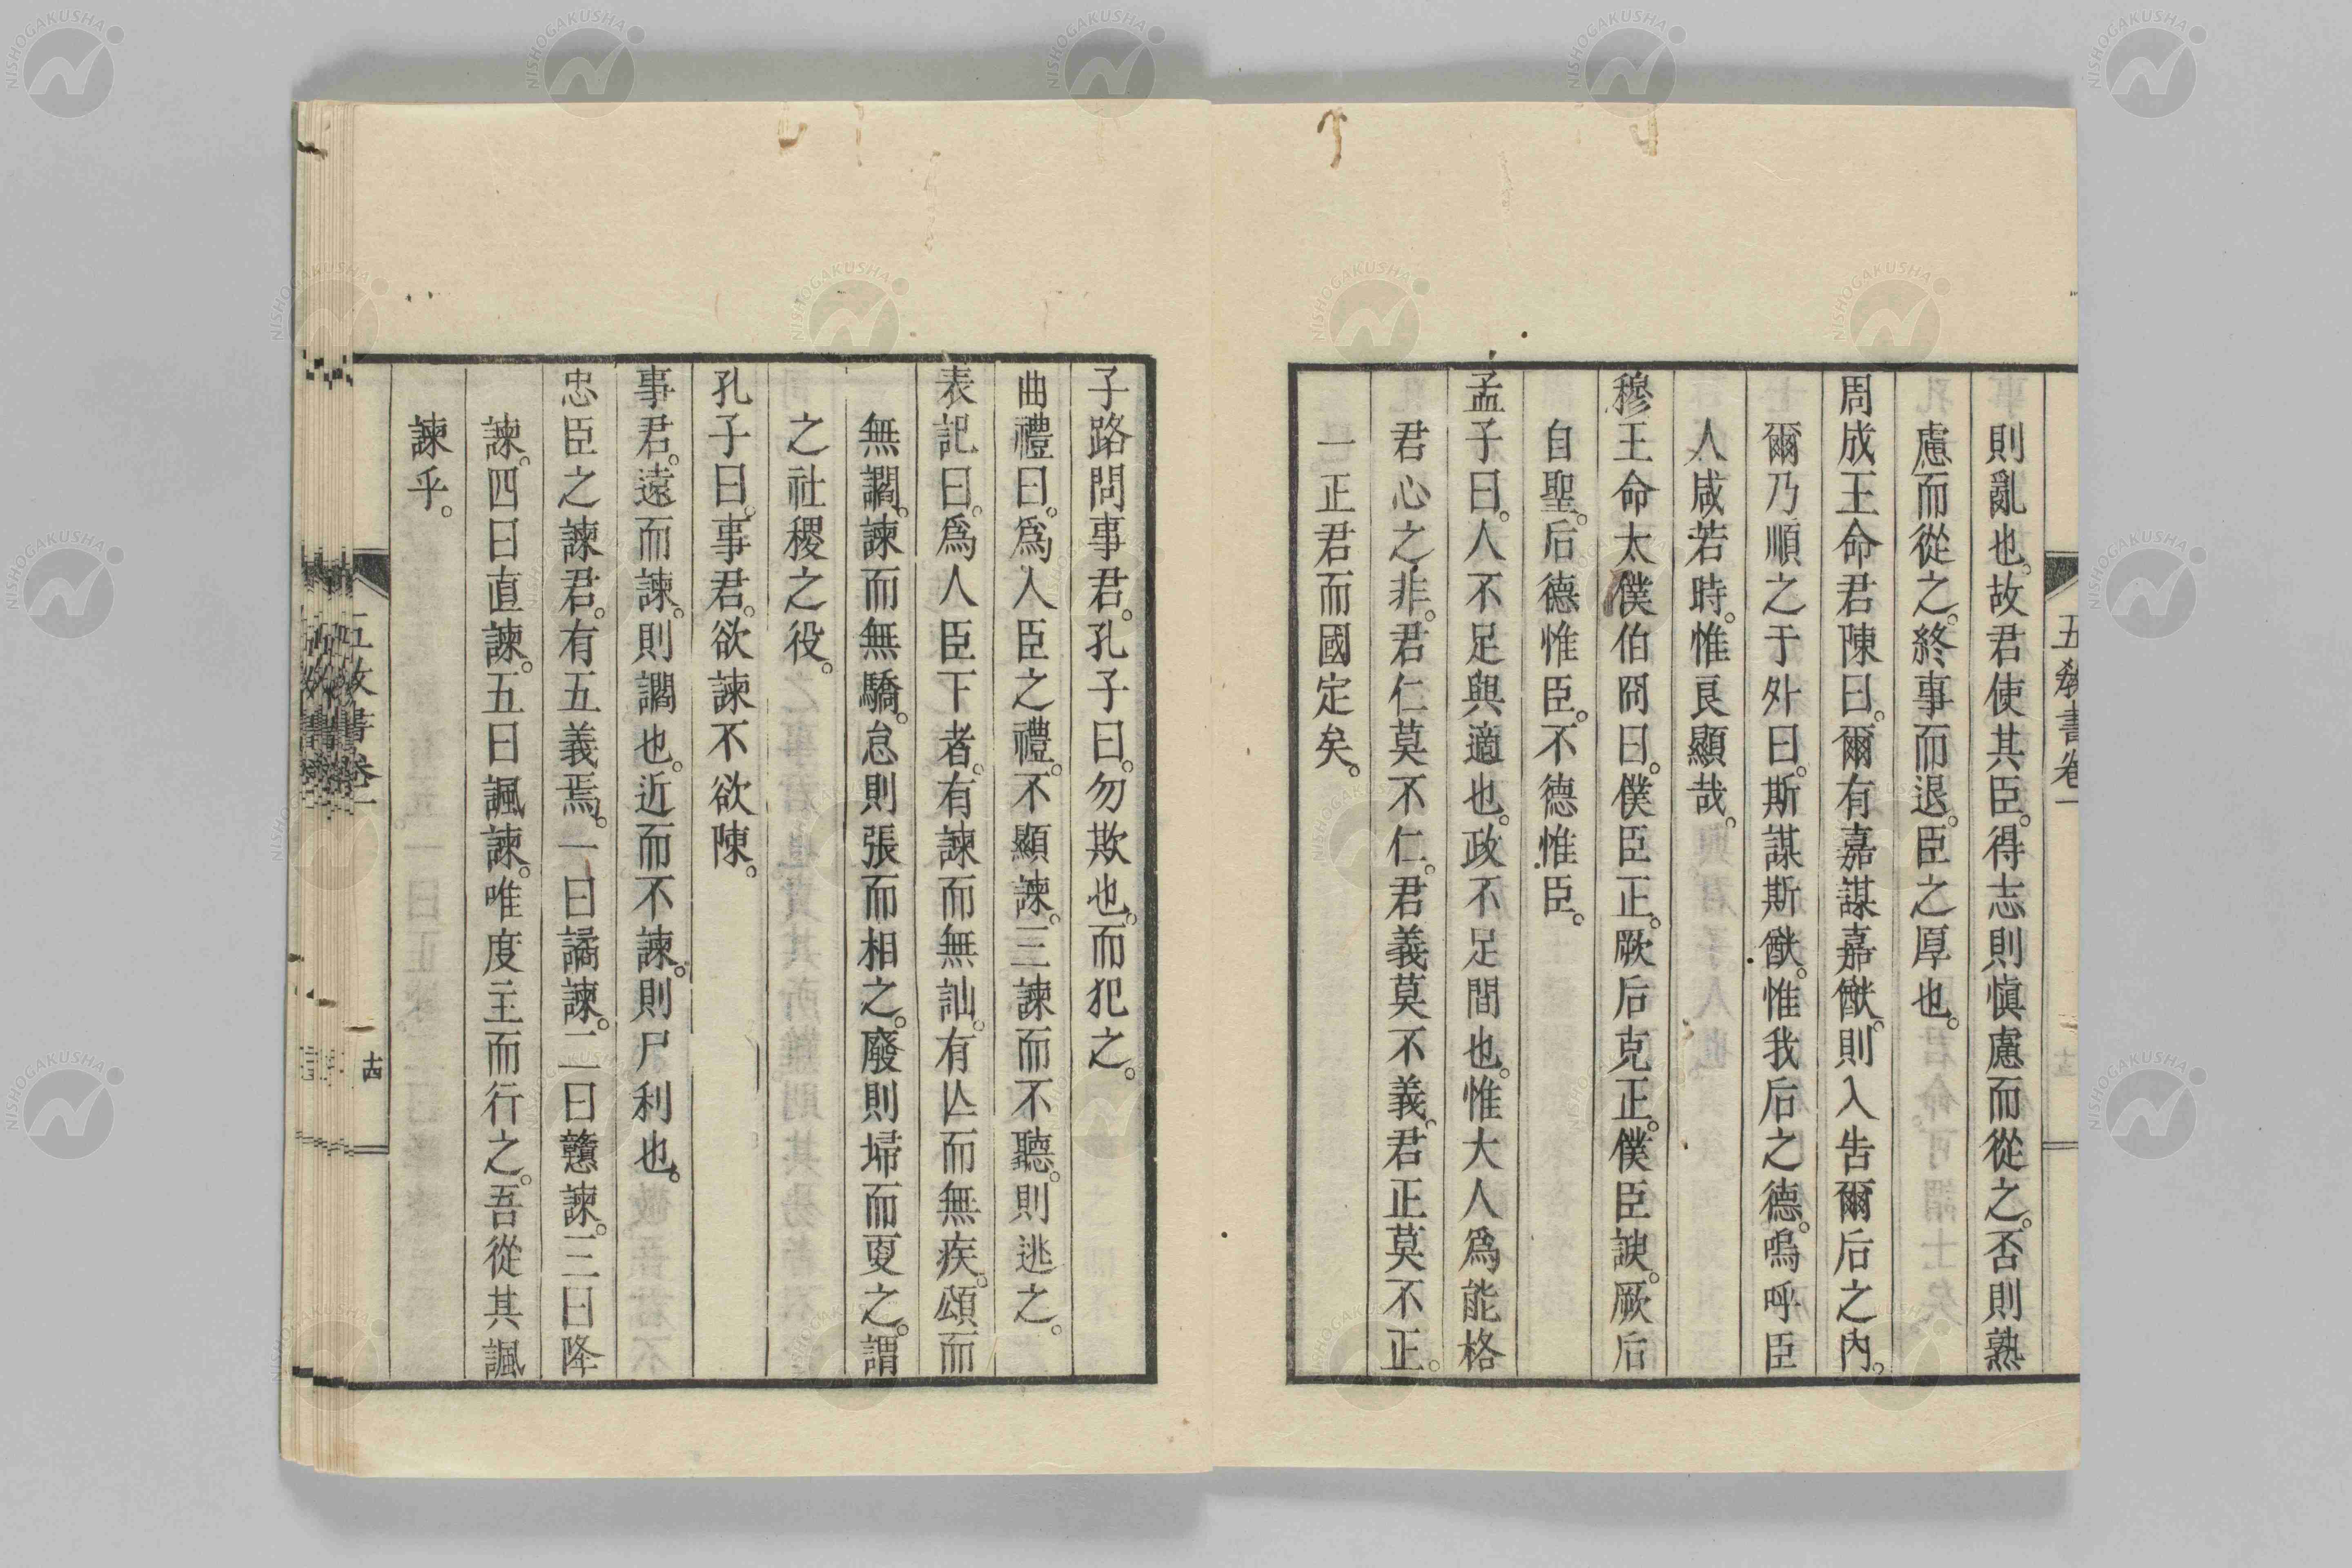 五教書卷一
則亂也。故君使其臣。得志則慎慮而從之。否則熟
慮而從之。終事而退。臣之厚也。
周成王命君陳曰。爾有嘉謀嘉猷。則入告爾后之內。
爾乃順之于外曰。斯謀斯猷。惟我后之德。嗚呼臣
人咸若時。惟良顯哉。
穆王命太僕伯冏曰。僕臣正。厥后克正。僕臣諛。厥后
自聖。后德惟臣。不德惟臣。
孟子曰。人不足與適也。政不足間也。惟大人爲能格
君心之非。君仁莫不仁。君義莫不義。君正莫不正。
一正君而國定矣。
子路問事君。孔子曰。勿欺也。而犯之。
曲禮曰。爲人臣之禮。不顯諫。三諫而不聽。則逃之。
表記曰。爲人臣下者。有諫而無訕。有亾而無疾。頌而
無讇。諫而無驕。怠則張而相之。廢則埽而更之。謂
之社稷之役。
孔子曰。事君。欲諫不欲陳。
事君。遠而諫。則讇也。近而不諫。則尸利也。
忠臣之諫君。有五義焉。一曰譎諫。二曰戇諫。三曰降
諫。四曰直諫。五曰諷諫。唯度主而行之。吾從其諷
諫乎。
五教書卷一
十四
NISHOGAKUSHA